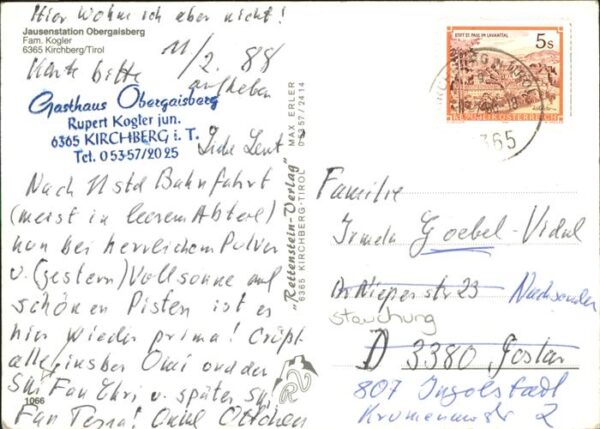 Hier wohn ich aber nicht!
Jausenstation Obergaisberg
Fam. Kogler
6365 Kirchberg/Tirol
11/2. 88
Karte bitte aufheben
Gasthaus Obergaisberg
Rupert Kogler jun.
6365 KIRCHBERG i. T.
Tel. 05357/2025
Liebe Leut!
Nach 11 std Bahnfahrt
(meist in leerem Abteil)
nun bei herrlichem Pulver
u. (gestern) Vollsonne auf
schönen Pisten ist es
hier wieder prima! Grüßt
alle insbes Omi und den
Ski Fan Chri u. später Ski
Fan Terna! Onkel Ottchen
1066
"Rettenstein-Verlag"
6365 KIRCHBERG-TIROL
MAX ERLER
05357/2414
STIFT ST. PAUL IM LAVANTTAL
5s
REPUBLIK ÖSTERREICH
6365
Familie
Irmela Goebel-Vidal
Nieperstr 23 Nachsenden
stauchung
D 3380 Goslar
807 Ingolstadt
Krumenauerstr 2